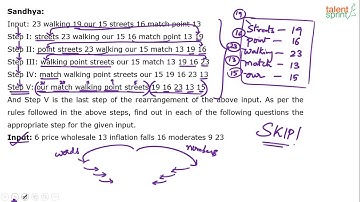 talent
sprint
Sandhya:
Input: 23 walking 19 our 15 streets 16 match point 13
Step I: streets 23 walking our 15 16 match point 13 19
Step II: point streets 23 walking our 15 match 13 19 16
Step III: walking point streets our 15 match 13 19 16 23
Step IV: match walking point streets our 15 19 16 23 13
Step V: our match walking point streets 19 16 23 13 15
And Step V is the last step of the rearrangement of the above input. As per the
rules followed in the above steps, find out in each of the following questions the
appropriate step for the given input.
Input: 6 price wholesale 13 inflation falls 16 moderates 9 23
19 streets - 19
16 point - 16
23 walking - 23
13 match - 13
15 our - 15
SKIP!
words
numbers